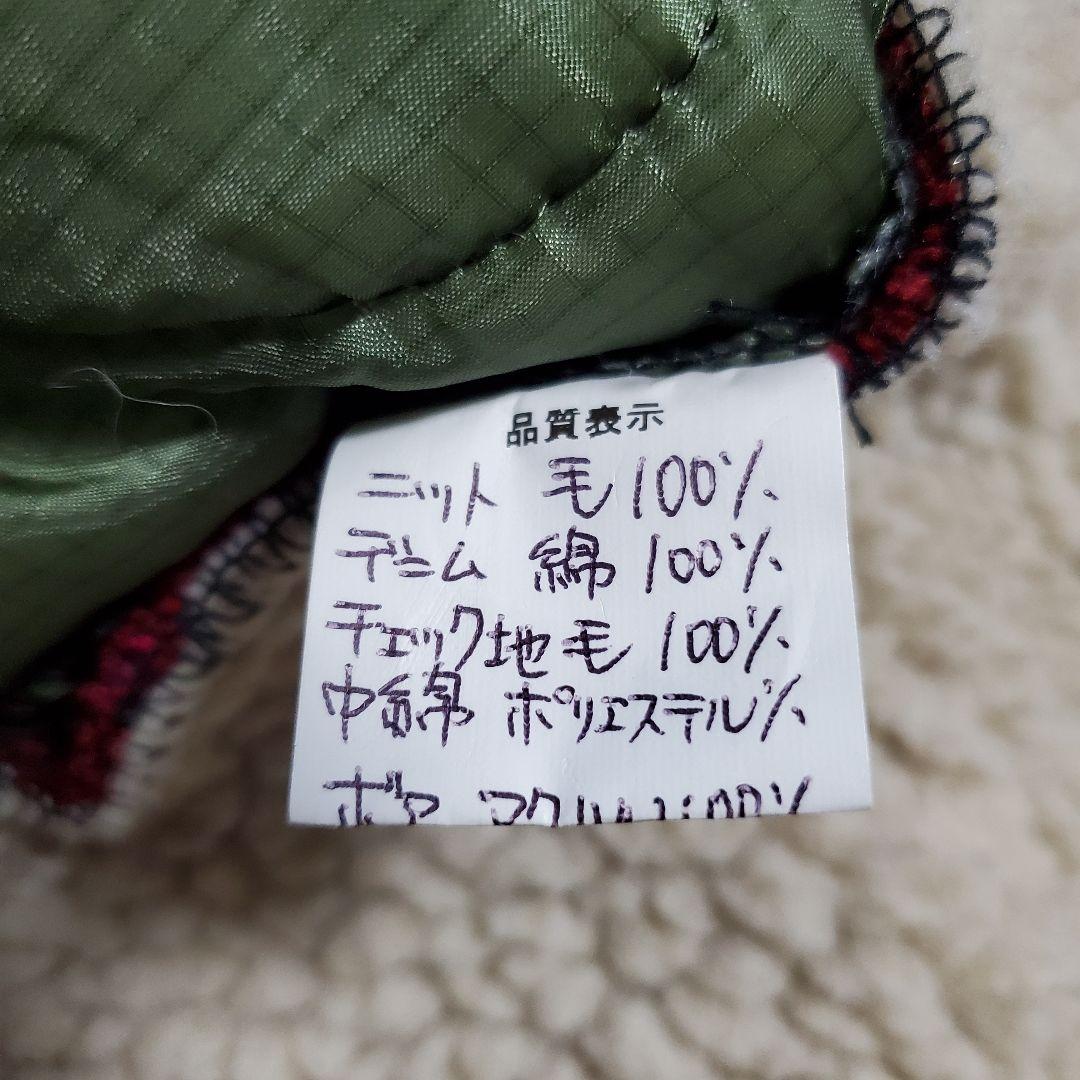 品質表示
ニット 毛100%
デニム 綿 100%
チェック地毛 100%
中綿 ポリエステル%
ボア アクリル100%